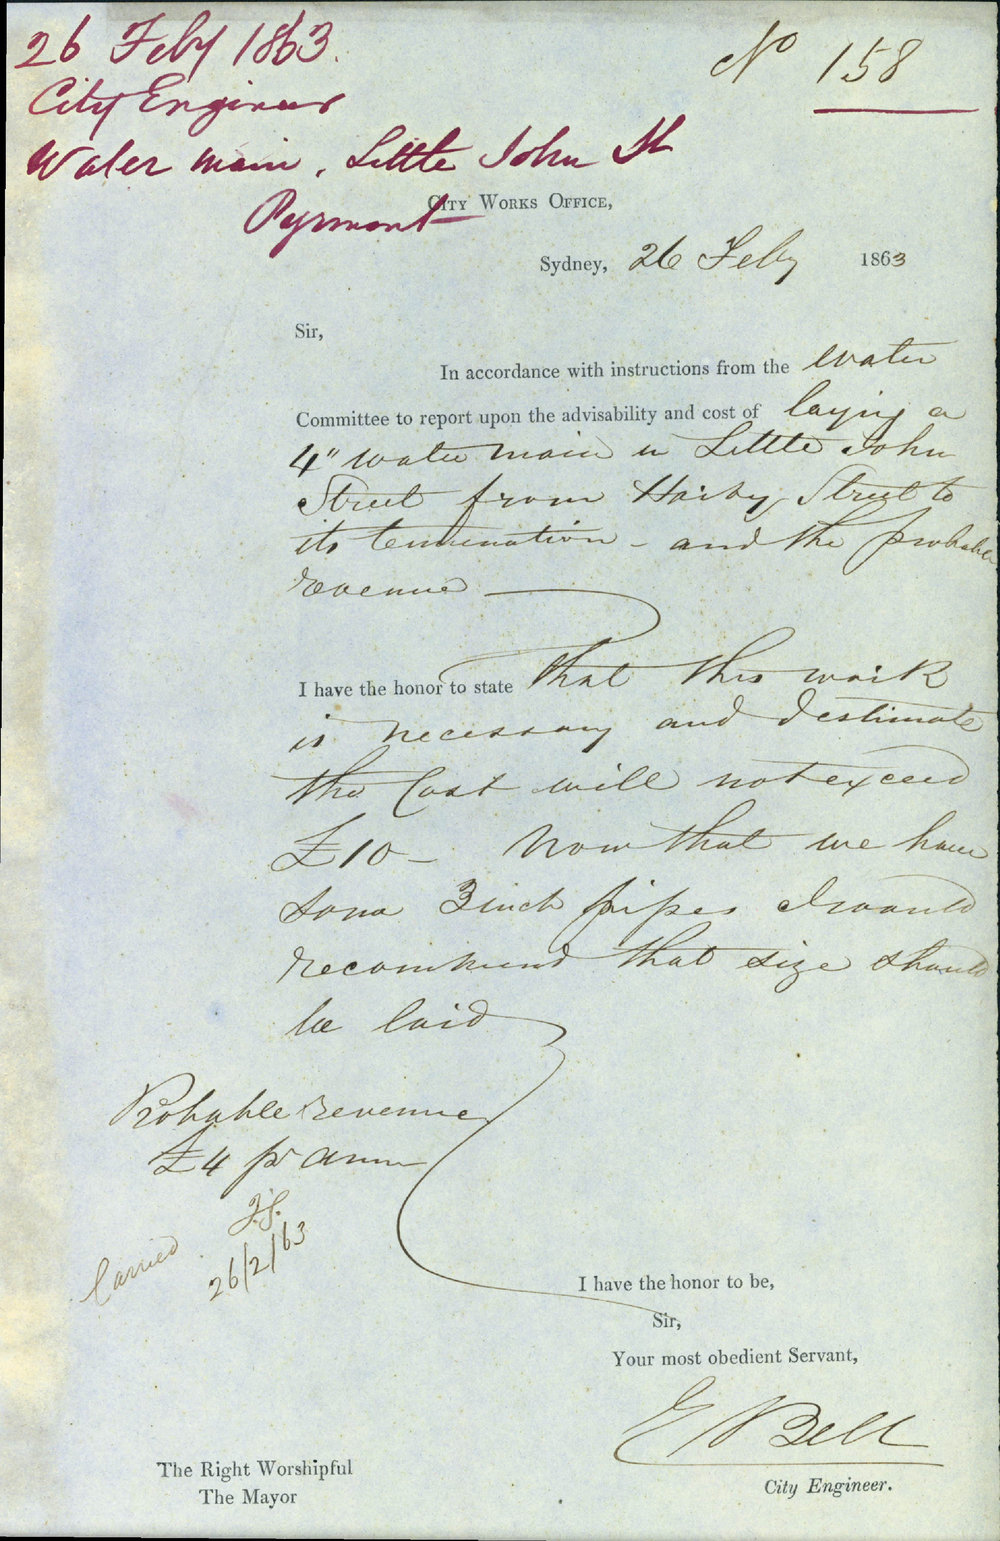 26 Feby 1863.
City Engineer
Water main, Little John St
Pyrmont
No 158
City Works Office,
Sydney, 26 Feby 1863
Sir,
In accordance with instructions from the Water
Committee to report upon the advisability and cost of laying a
4" water main in Little John
Street from Harvey Street to
its termination - and the probable
revenue
I have the honor to state that this work
is necessary and I estimate
the Cost will not exceed
£10 - Now that we have
some 3 inch pipes I would
recommend that size should
be laid
Probable revenue
£4 pr Ann
Carried
26/2/63
I have the honor to be,
Sir,
Your most obedient Servant,
E Bell
City Engineer.
The Right Worshipful
The Mayor